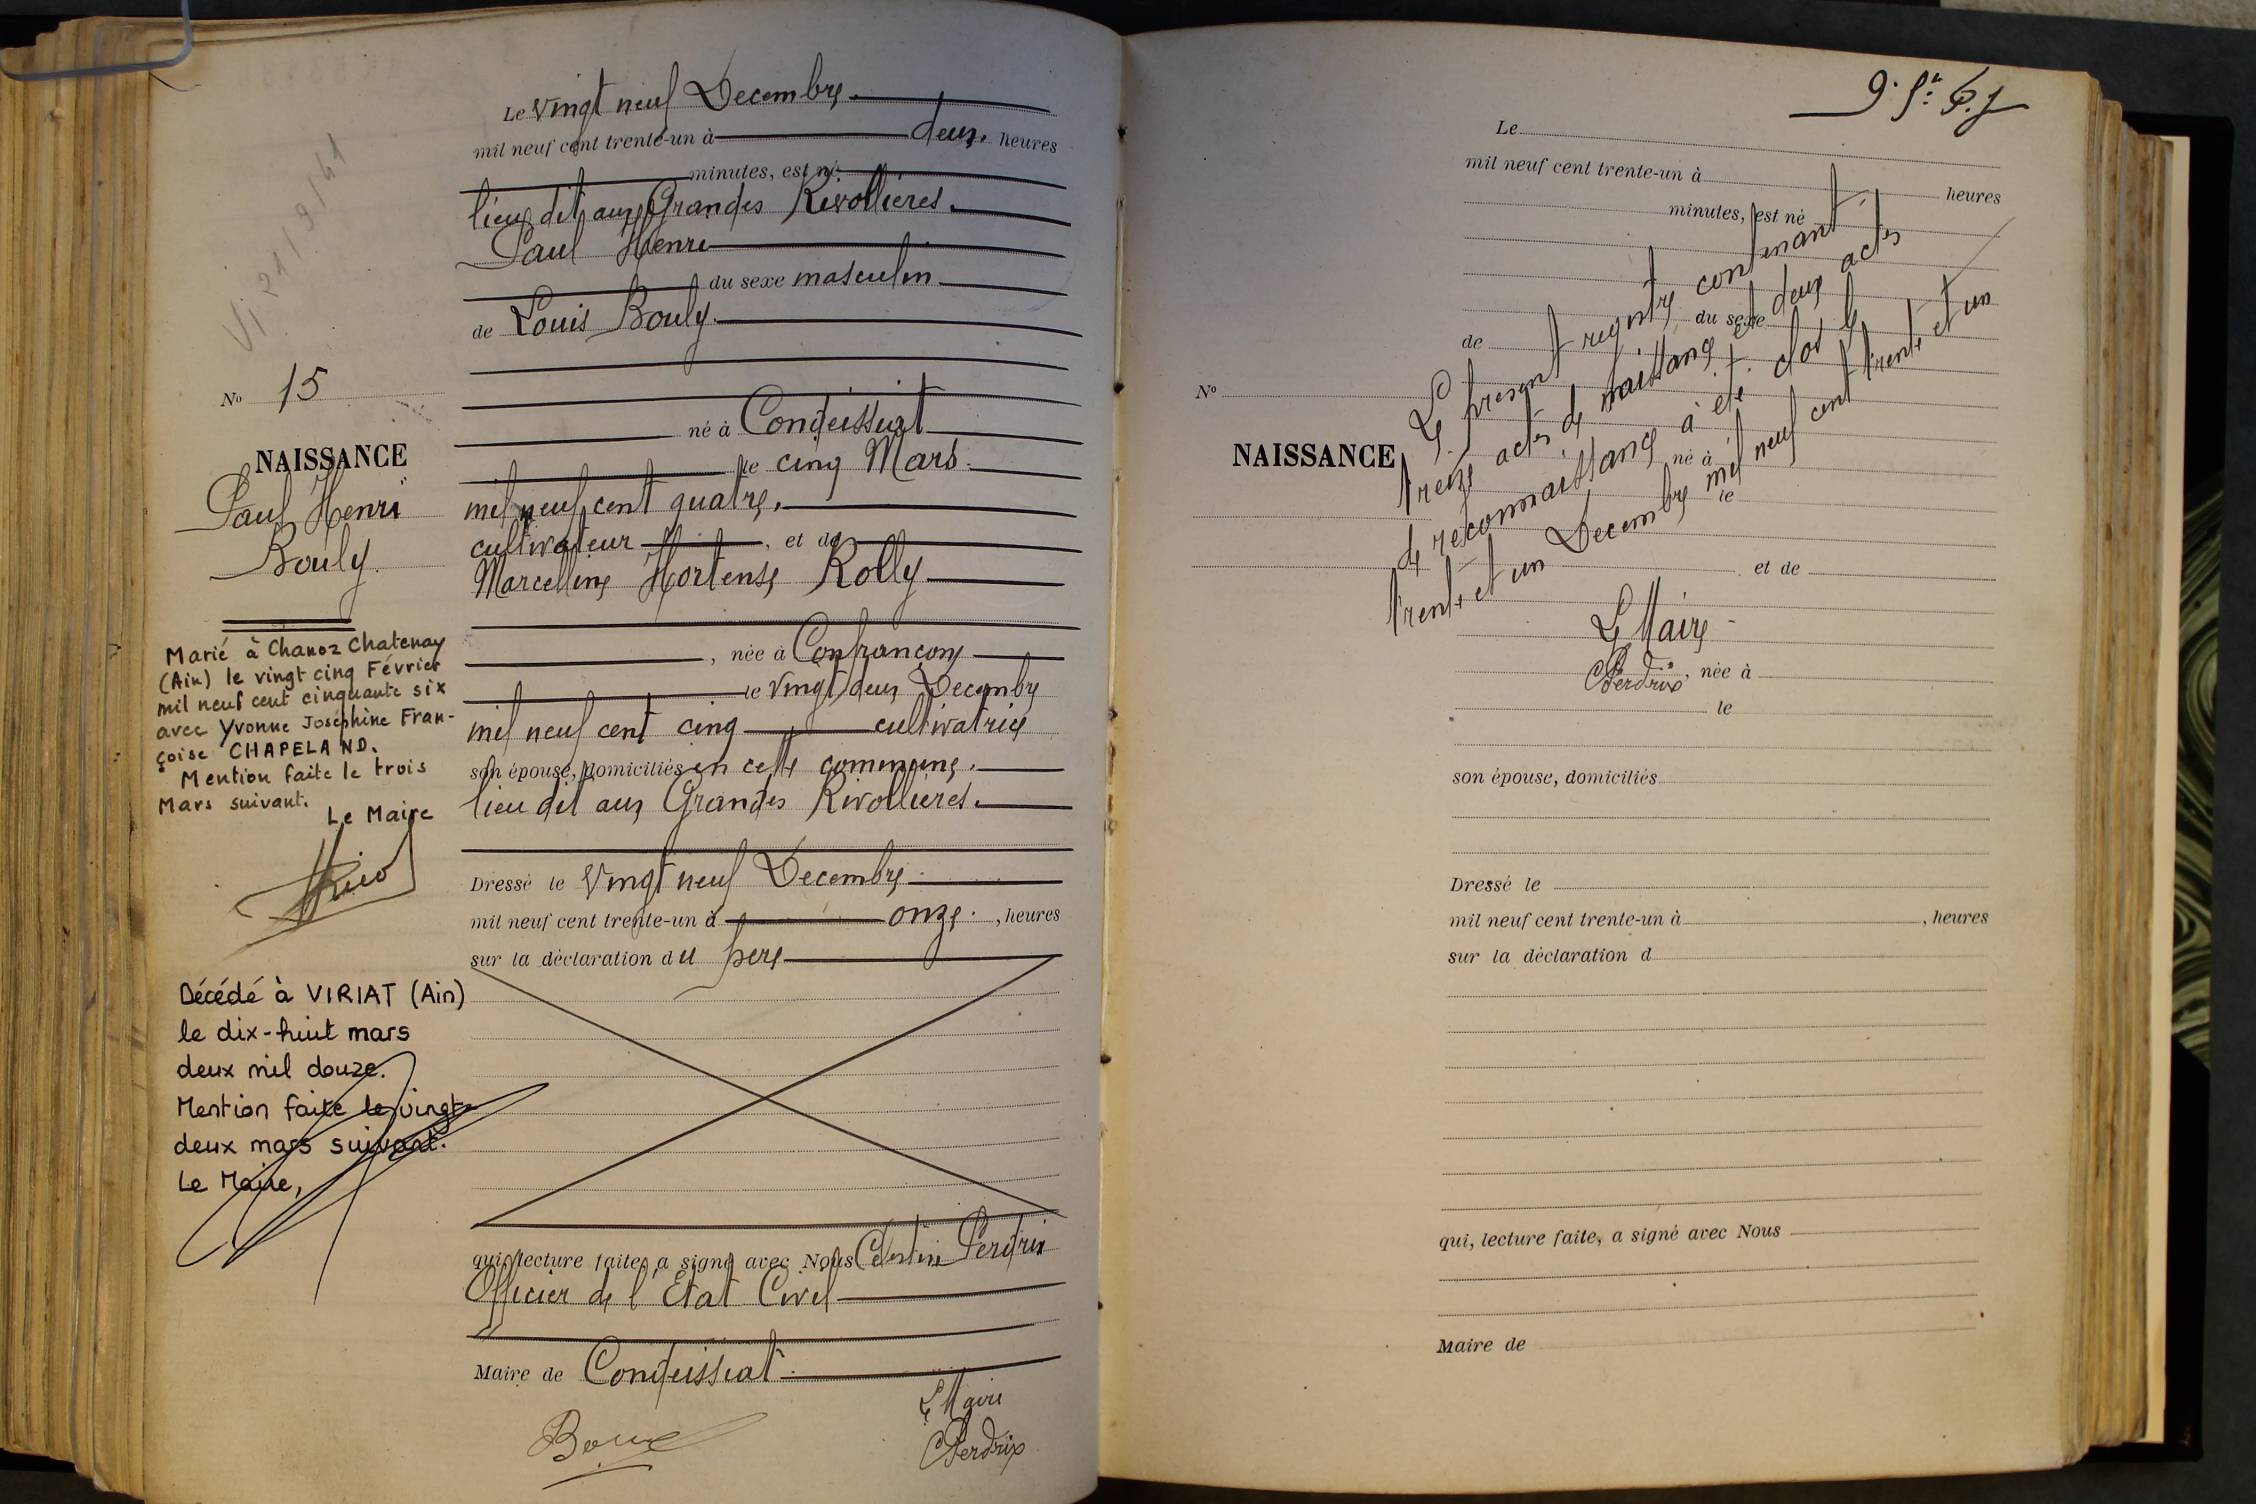 Le vingt neuf Decembre
mil neuf cent trente-un à deux heures
minutes, est né
lieu dit aux Grandes Rivollières.
Paul Henri
du sexe masculin
de Louis Bouly
né à Condeissiat
le cinq Mars
mil neuf cent quatre,
cultivateur, et de
Marcelline Hortense Rolly
, née à Confrançon
le vingt deux Decembre
mil neuf cent cinq cultivatrice
son épouse, domiciliés en cette commune.
lieu dit aux Grandes Rivollieres.
Dressé le vingt neuf Decembre
mil neuf cent trente-un à onze, heures
sur la déclaration du père
qui, lecture faite, a signé avec Nous Célestin Perdrix
Officier de l'État Civil
Maire de Condeissiat
Le Maire
CPerdrix
N° 15
NAISSANCE
Paul Henri
Bouly
Marié à Chanoz Chatenay
(Ain) le vingt cinq Février
mil neuf cent cinquante six
avec Yvonne Joséphine Fran-
çoise CHAPELAND.
Mention faite le trois
Mars suivant.
Le Maire
Décédé à VIRIAT (Ain)
le dix-huit mars
deux mil douze.
Mention faite le vingt-
deux mars suivant.
Le Maire,
Le
mil neuf cent trente-un à heures
minutes, est né
du sexe
de
N°
NAISSANCE
né à
le
et de
, née à
le
son épouse, domiciliés
Dressé le
mil neuf cent trente-un à , heures
sur la déclaration d
qui, lecture faite, a signé avec Nous
Maire de
Le présent registre contenant
treize actes de naissance et deux actes
de reconnaissance à été clos le
trente et un Decembre mil neuf cent trente et un
Le Maire
CPerdrix